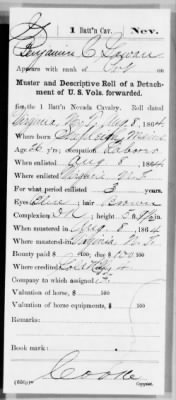 1 Batt'n Cav. Nev.
Benjamin C
Appears with rank of
Muster and Descriptive Roll of a Detach-
ment of U. S. Vols. forwarded.
for the 1 Batt'n Nevada Cavalry. Roll dated
Virginia N. T. Aug 8, 1864
Where born Maine
Age 26 y'rs; occupation Laborer
When enlisted Aug 8, 1864
Where enlisted Virginia N. T.
For what period enlisted 3 years.
Eyes Blue; hair Brown
Complexion; height 5 ft. in.
When mustered in Aug 8, 1864
Where mustered in Virginia N. T.
Bounty paid $ 100; due $ 100
Where credited
Company to which assigned
Valuation of horse, $ 100
Valuation of horse equipments, $ 100
Remarks:
Book mark:
Cooke
Copyist.